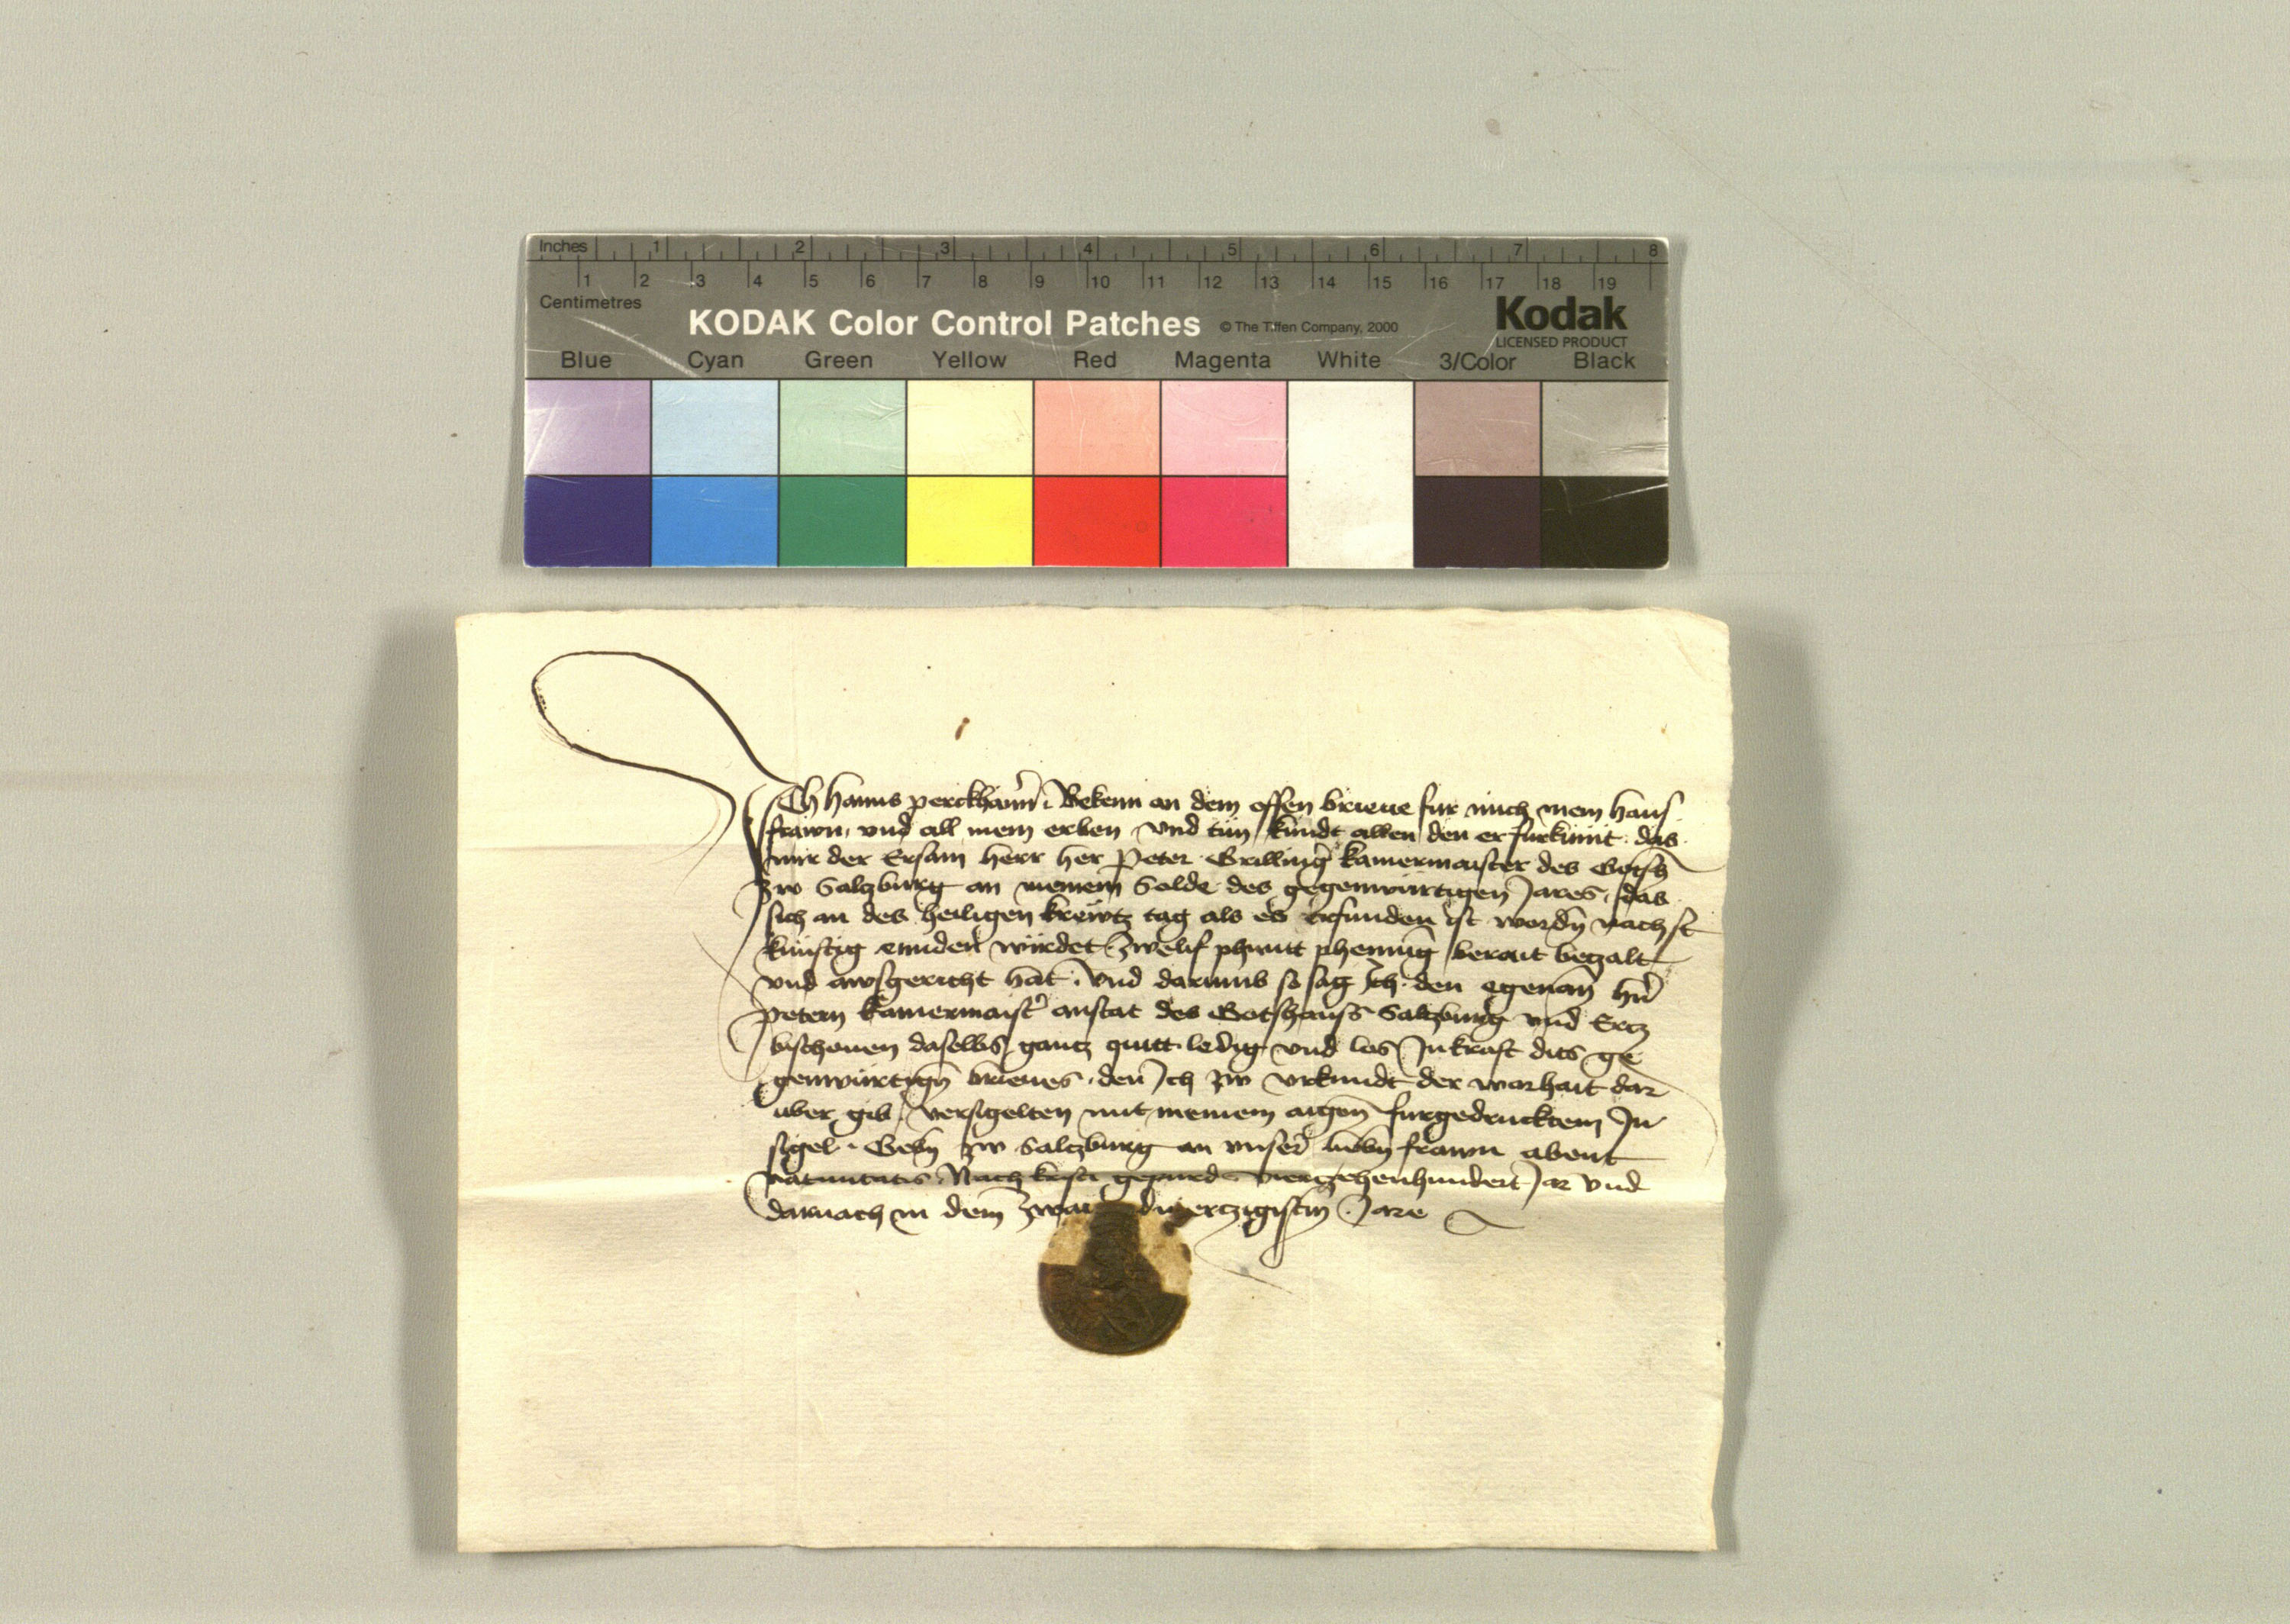 Inches 1 2 3 4 5 6 7 8
1 2 3 4 5 6 7 8 9 10 11 12 13 14 15 16 17 18 19
Centimetres
KODAK Color Control Patches © The Tiffen Company, 2000 Kodak
LICENSED PRODUCT
Blue Cyan Green Yellow Red Magenta White 3/Color Black
Ich hanns perckhaim̄ Bekenn an dem offen brieue fur mich mein haus
frawn, vnd all mein erben vnd tün kundt allen den er furkümt das
mir der Ersam herr her Peter Grillinḡ kamermaister des Gotsh
zw Salczburg an meinem Solde des gegenwürtigen Jares, das
sich an des heiligen krewtz tag als es erfunden ist word̄n nachst
künftig ennden würdet Zwelif phuntt phenniḡ berait beczalt
vnd awsgericht hat. Vnd darumb so sag Ich den egenan̄ hn̄
Petern kamermaist̄ anstat des Gotshauss Salczburg vnd Ercz
bischouen daselbs gantz quitt ledig vnd los In kraft dits ge
genwürtign̄ brieues, den Ich zw vrkundt der warhait dar
über gib, versigelten mit meinem aigen̄ furgedrucktem In
sigel. Geb̄n zw Salczburg an vnser̄ lieb̄n frawn abent
Natiuitatis Nach kristi gepurd vierzehenhundert Jar vnd
darnach in dem Zwai diuerczigistm̄ Jare